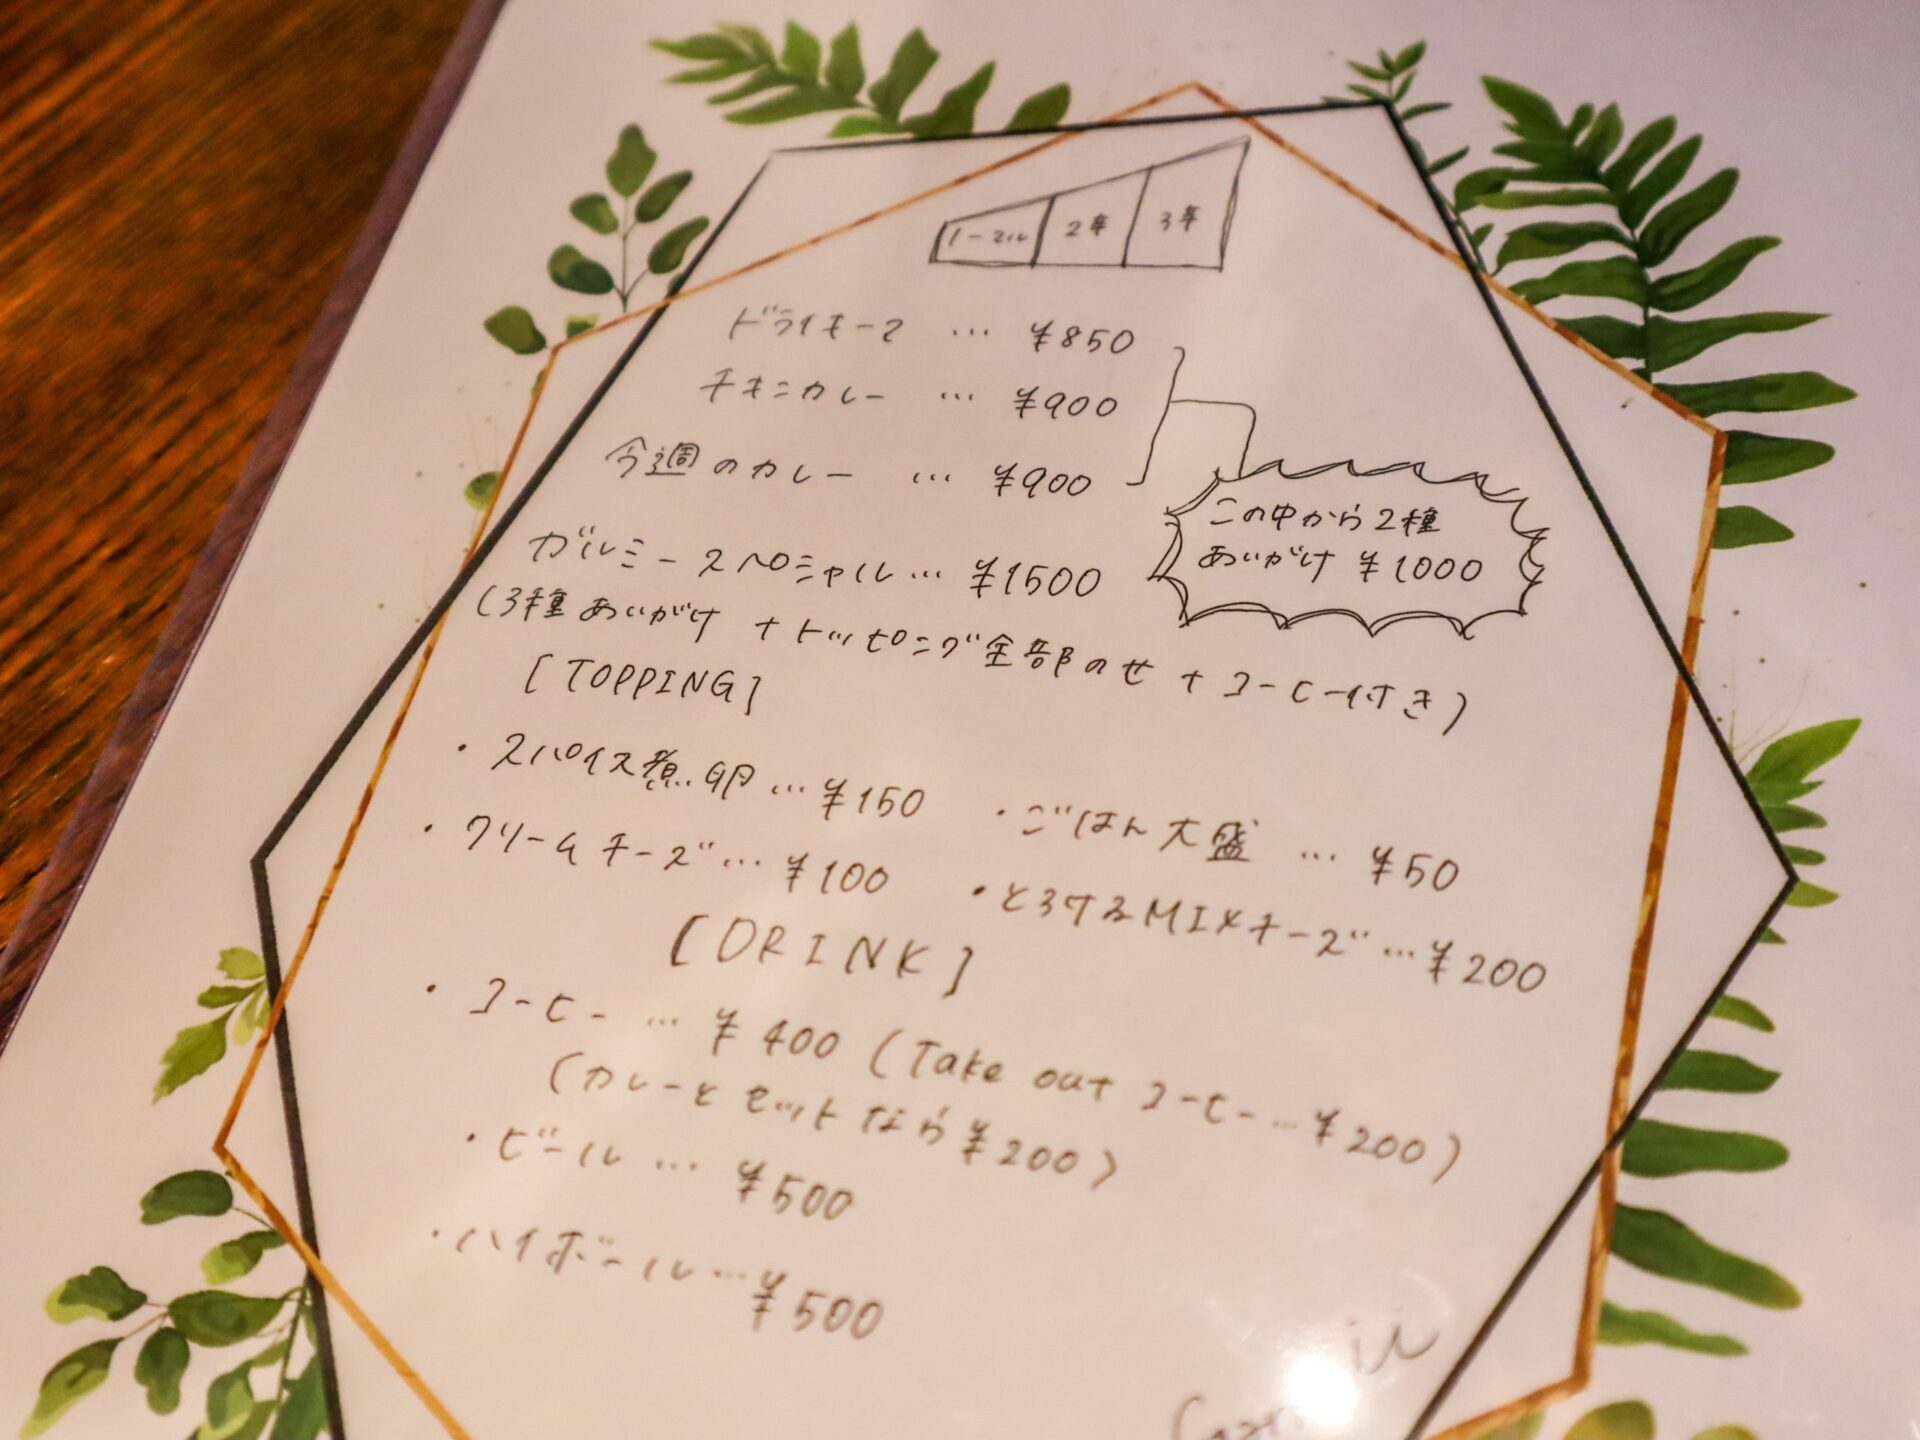 ノーマル 2辛 3辛
ドライキーマ … ¥850
チキンカレー … ¥900
今週のカレー … ¥900
この中から2種
あいがけ ¥1000
ガルミースペシャル … ¥1500
(3種あいがけ + トッピング全部のせ + コーヒー付き)
[TOPPING]
・スパイス煮卵 … ¥150
・ごはん大盛 … ¥50
・クリームチーズ … ¥100
・とろけるMIXチーズ … ¥200
[DRINK]
・コーヒー … ¥400 (Take out コーヒー … ¥200)
(カレーとセットなら¥200)
・ビール … ¥500
・ハイボール … ¥500